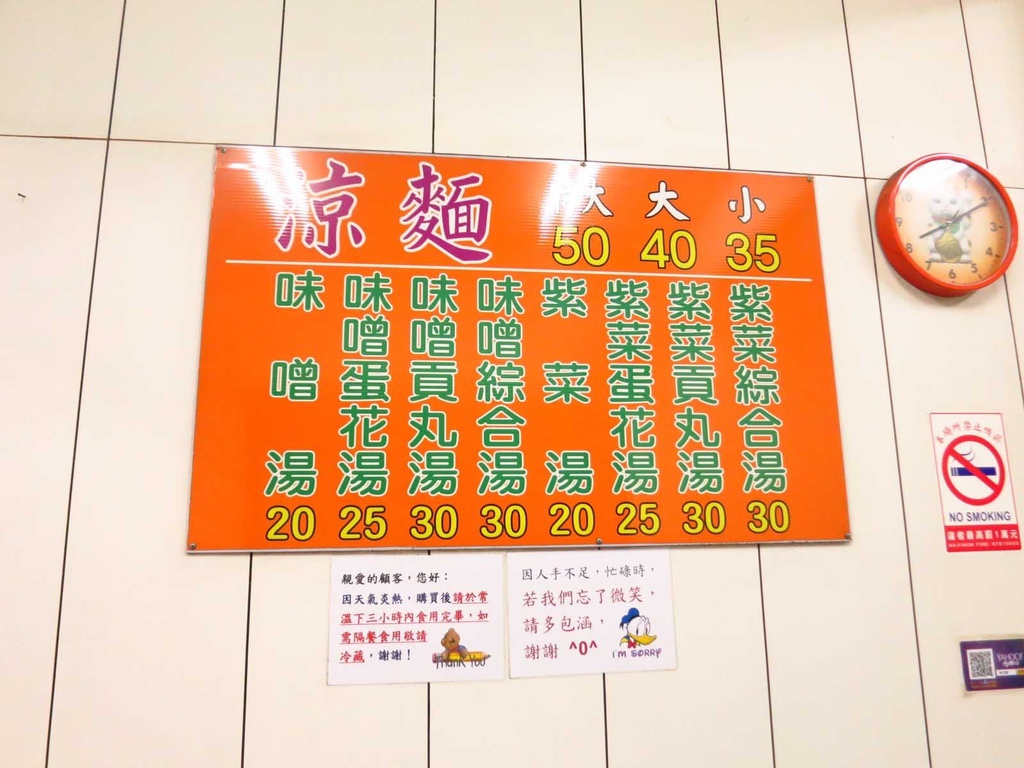 涼麵
大 大 小
50 40 35
味噌湯 20
味噌蛋花湯 25
味噌貢丸湯 30
味噌綜合湯 30
紫菜湯 20
紫菜蛋花湯 25
紫菜貢丸湯 30
紫菜綜合湯 30
親愛的顧客，您好：
因天氣炎熱，購買後請於常
溫下三小時內食用完畢，如
需隔餐食用敬請
冷藏，謝謝！
THANK YOU
因人手不足，忙碌時，
若我們忘了微笑，
請多包涵，
謝謝 ^0^
I'M SORRY
本場所禁止吸菸
NO SMOKING
違者最高罰1萬元
YAHOO!